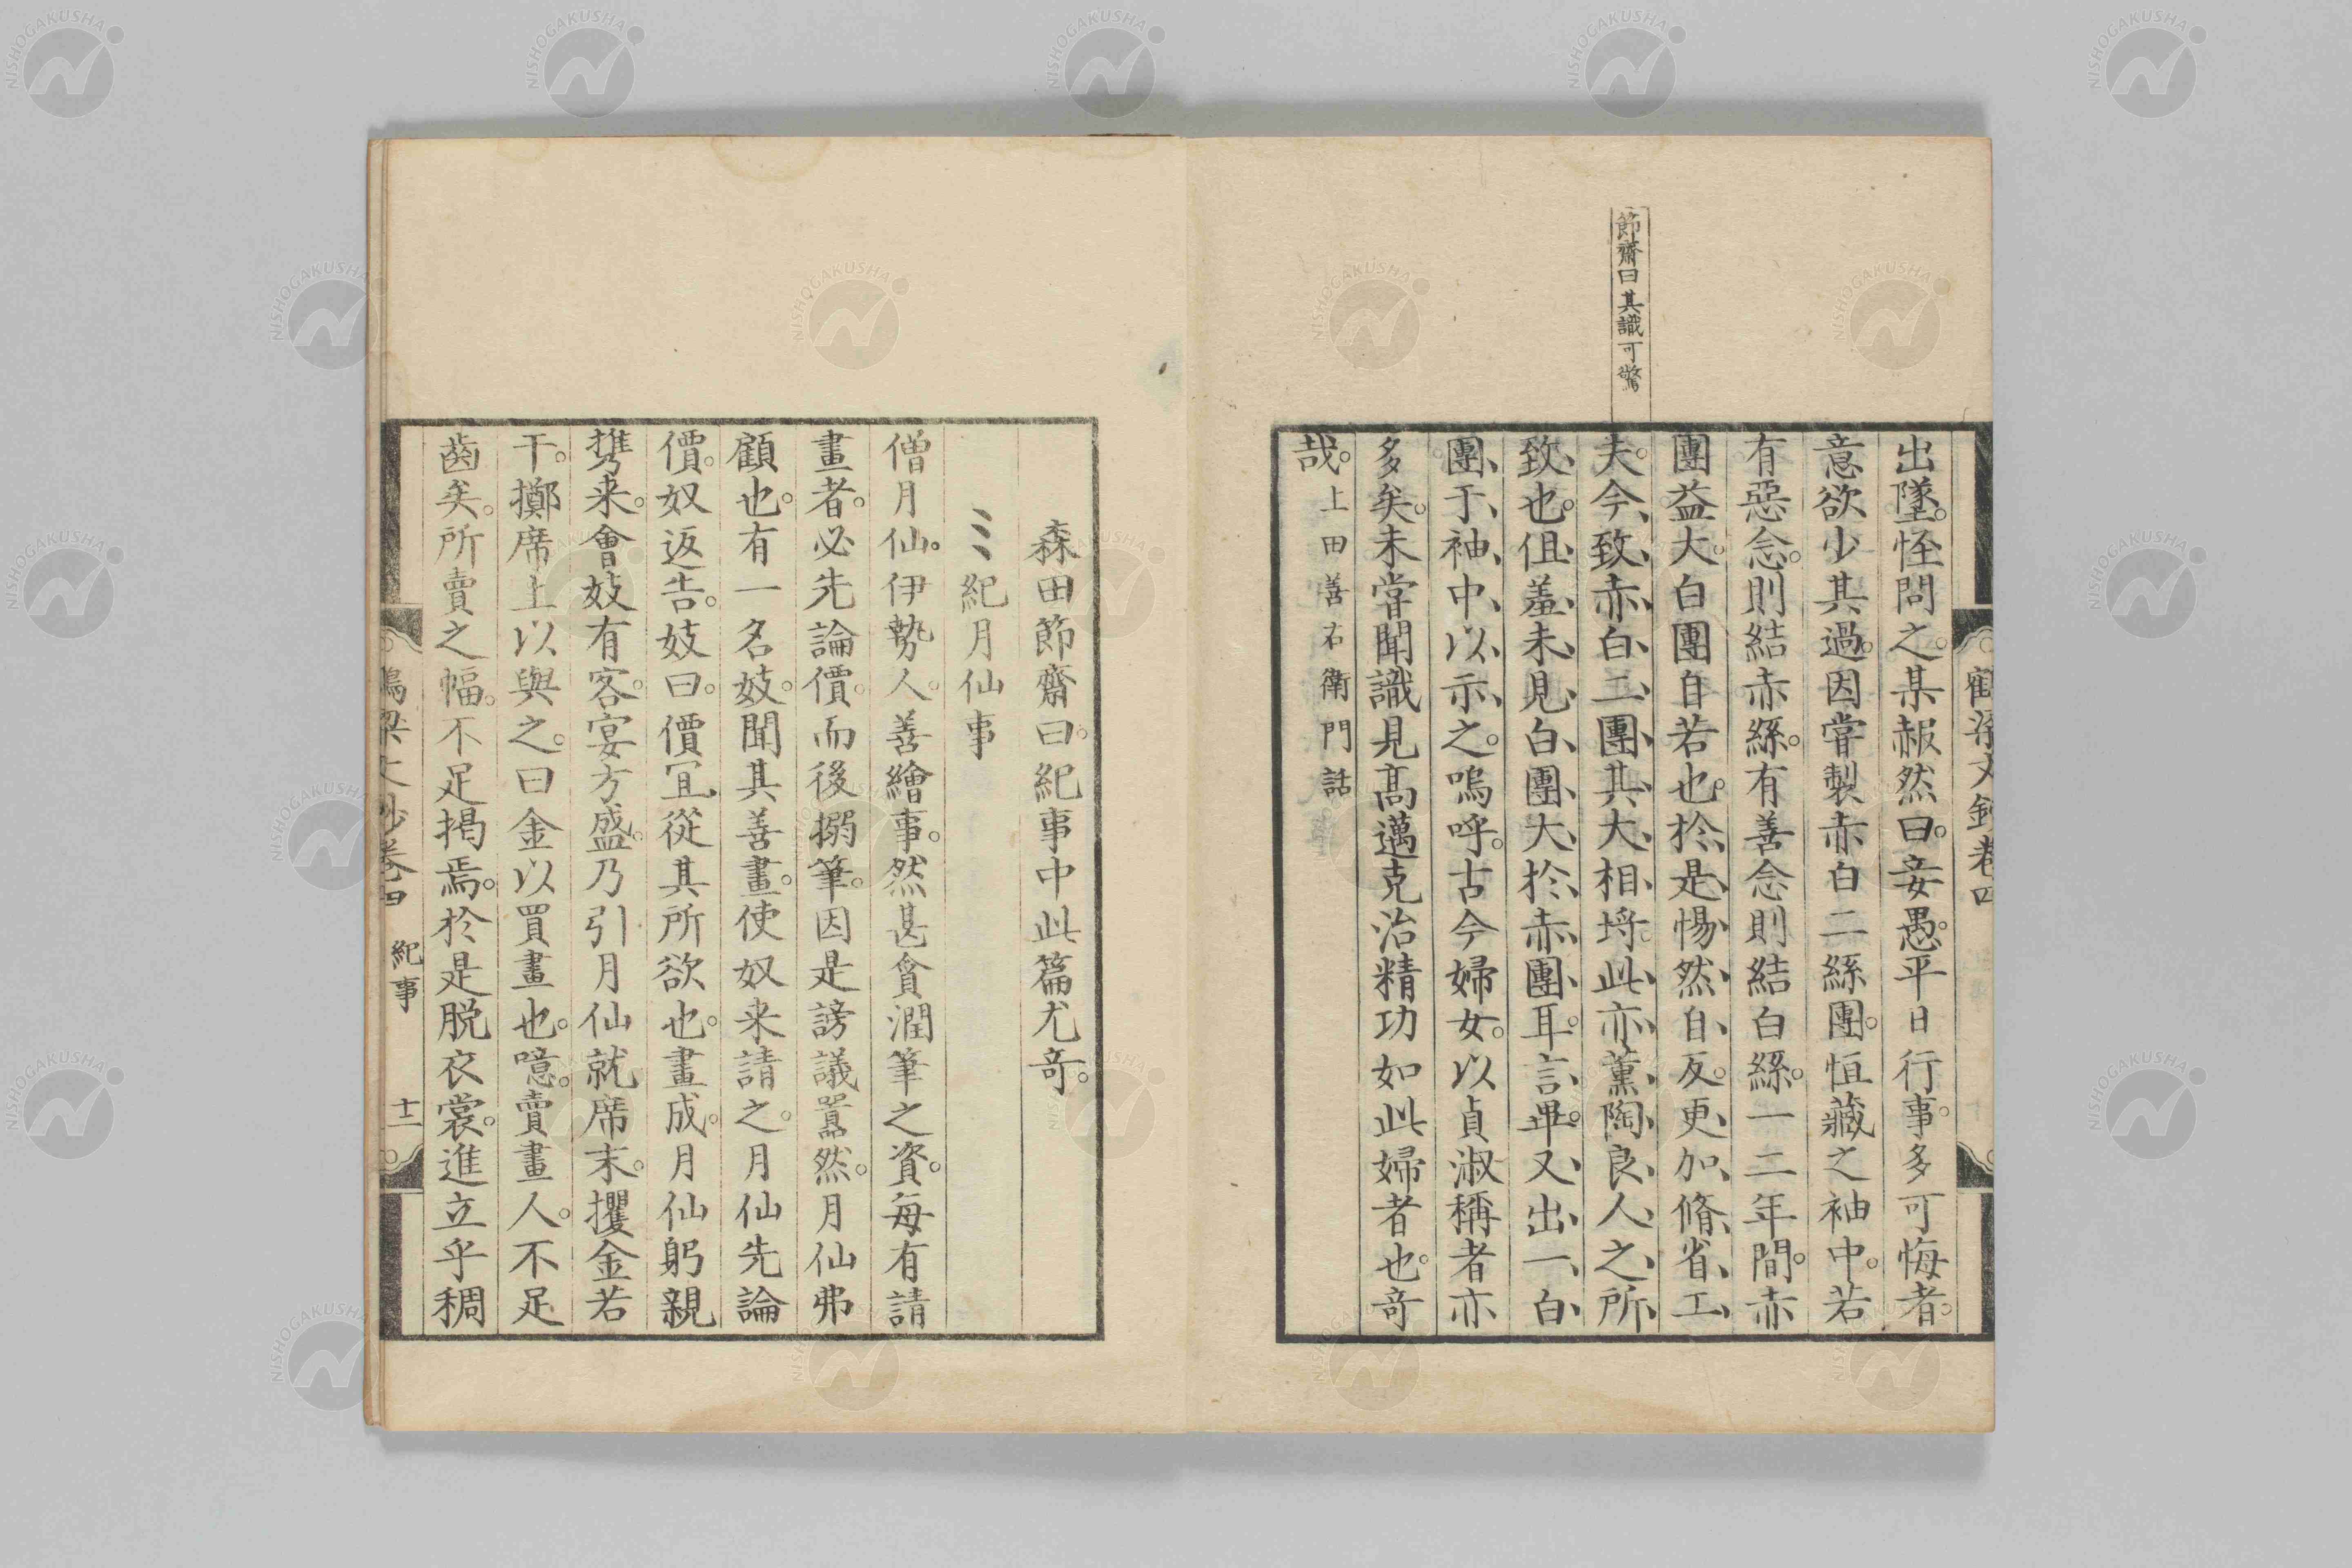 節齋曰其識可驚
出墜。恠問之。某赧然曰。妾愚。平日行事。多可悔者。
意欲少其過。因甞製赤白二絲團。恒藏之袖中。若
有惡念。則結赤絲。有善念則結白絲。一二年間。赤
團益大。白團自若也。於是惕然自反。更加脩省。工
夫。今致赤白二團。其大相埒。此亦薫陶良人之所
致也。但羞未見白團大於赤團耳。言畢。又出一白
團于袖中以示之。嗚呼。古今婦女。以貞淑稱者亦
多矣。未甞聞識見髙邁克治精功如此婦者也。竒
哉。上田善右衛門話
森田節齋曰。紀事中此篇尤竒。
紀月仙事
僧月仙。伊勢人。善繪事。然甚貪潤筆之資。每有請
畫者。必先論價。而後搦筆。因是謗議囂然。月仙弗
顧也。有一名妓。聞其善畫。使奴来請之。月仙先論
價。奴返告。妓曰。價冝從其所欲也。畫成。月仙躬親
携来。會妓有客。宴方盛。乃引月仙就席末。攫金若
干。擲席上以與之。曰金以買畫也。噫。賣畫人。不足
齒矣。所賣之幅。不足掲焉。於是脱衣裳。進立乎稠
紀事
十一